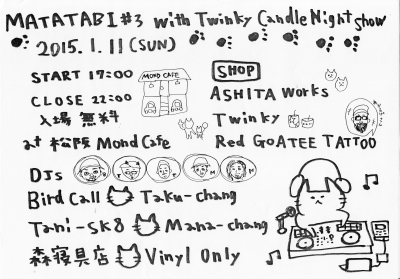 MATATABI #3 with Twinky Candle Night show
2015.1.11 (SUN)
START 17:00
CLOSE 22:00
入場 無料
at 松阪 Mond Cafe
MOND CAFE
SHOP
ASHITA Works
Twinky
Red GOATEE TATTOO
DJs
Bird Call Taku-chang
Tani-sk8 Mana-chang
森寝具店 Vinyl Only